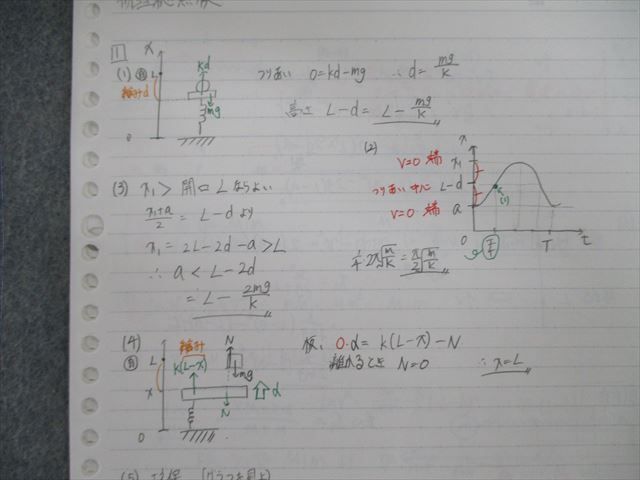 1
(1)
x
L
縮みd
0
kd
mg
つりあい 0=kd-mg ∴d=mg/k
高さ L-d=L-mg/k
(2)
x
V=0 端 x₁
つりあい中心 L-d
V=0 端 a
(1)
0 T/4 T t
1/4・2π√m/k=π/2√m/k
(3) x₁>
L ならよい
x₁+a/2 = L-d より
x₁=2L-2d-a>L
∴a<L-2d
=L-2mg/k
(4)
L
x
0
縮み
k(L-x)
N
mg
N
α
板、0・α=k(L-x)-N
離れるとき N=0 ∴x=L
(5)